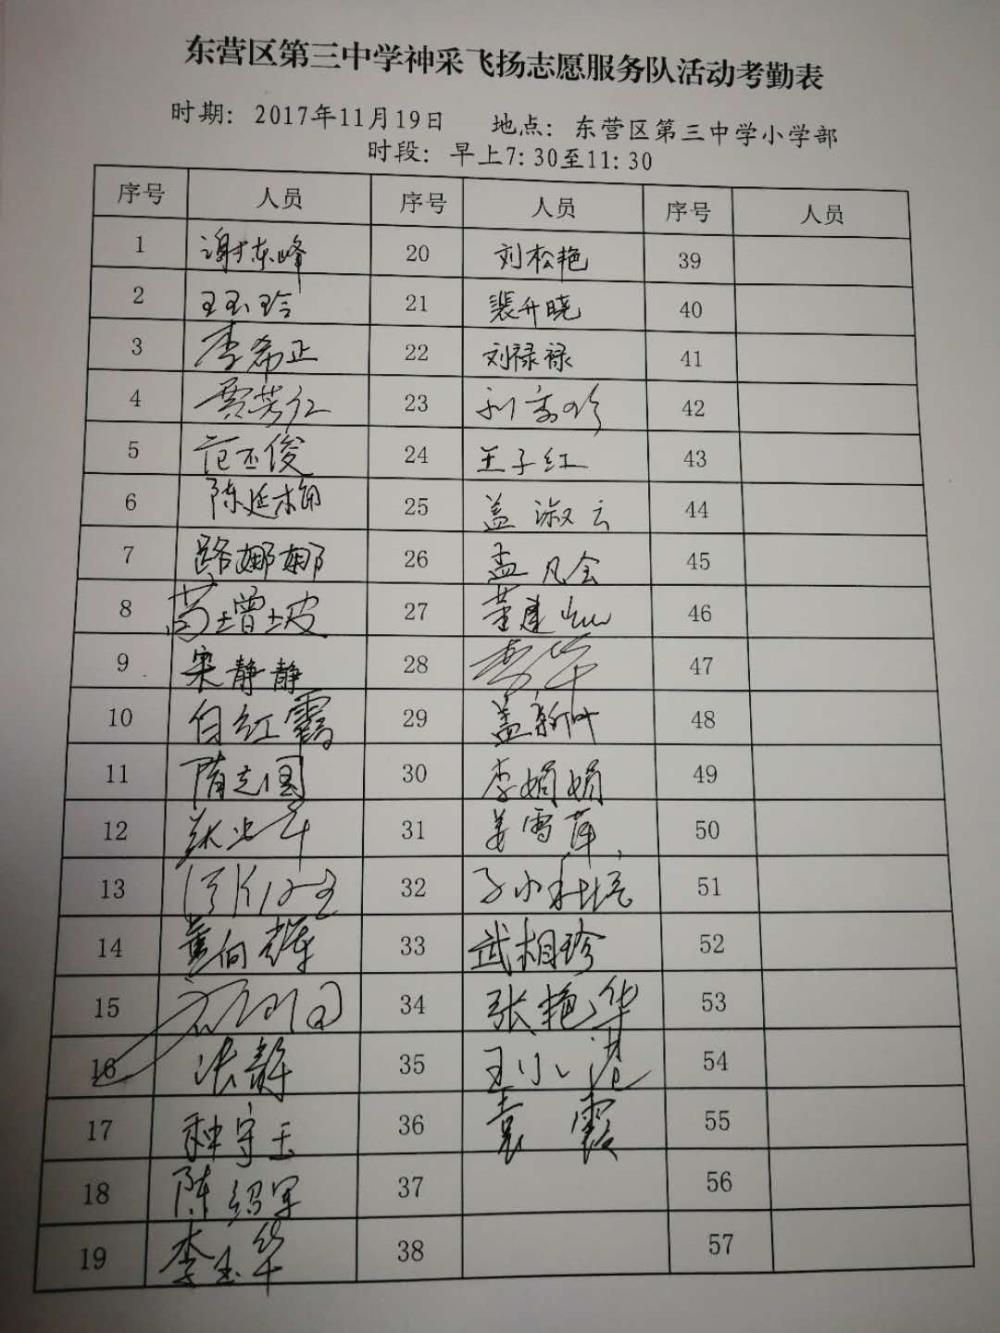 东营区第三中学神采飞扬志愿服务队活动考勤表
时期: 2017年11月19日 地点: 东营区第三中学小学部
时段: 早上7:30至11:30
序号 人员 序号 人员 序号 人员
1 谢东峰 20 刘松艳 39
2 王玉玲 21 裴升晓 40
3 李希正 22 刘禄禄 41
4 贾芳仁 23 42
5 范丕俊 24 王子红 43
6 陈延梅 25 盖淑云 44
7 路娜娜 26 孟凡全 45
8 苟增坡 27 董建 46
9 宋静静 28 李华 47
10 白红霞 29 盖新叶 48
11 隋志国 30 李娟娟 49
12 31 姜雪萍 50
13 32 51
14 董向 33 武相珍 52
15 34 张艳华 53
16 张静 35 王小港 54
17 种守玉 36 袁霞 55
18 陈绍军 37 56
19 李玉华 38 57